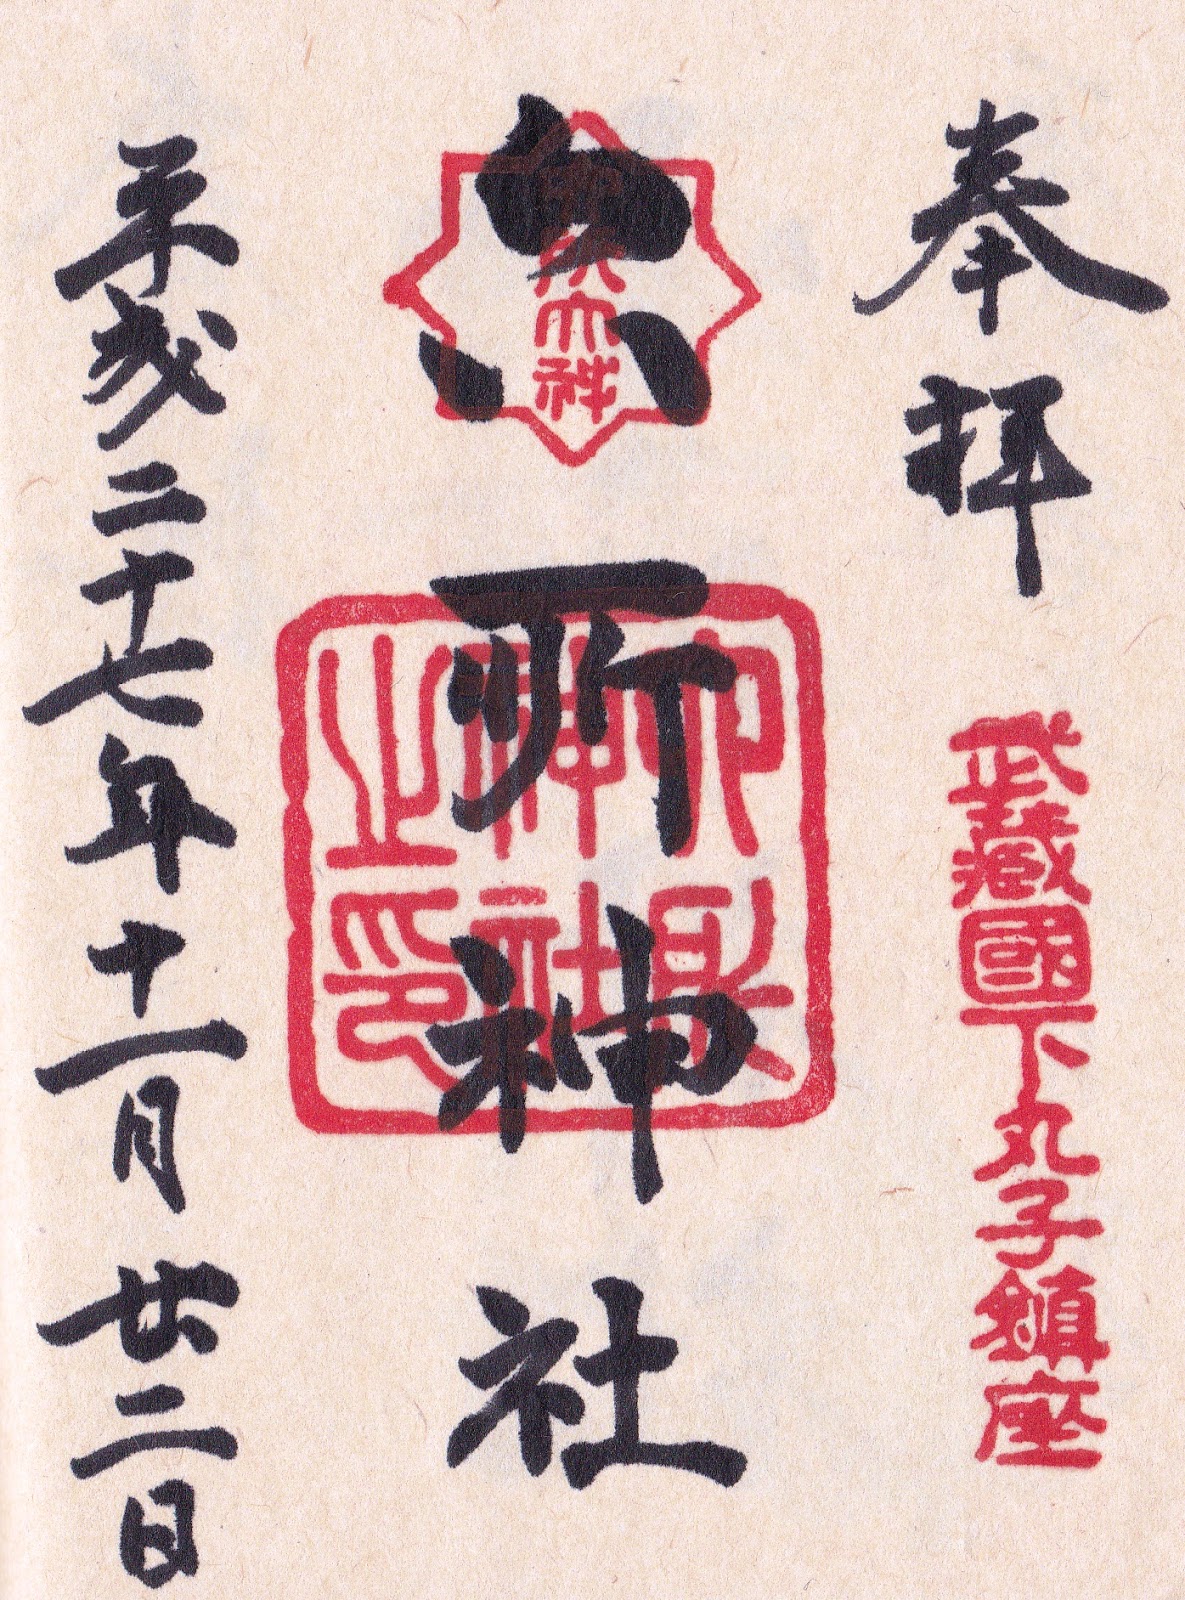 奉拝
武藏國下丸子鎮座
六所神社
六所
神社
之印
平成二十七年十一月廿二日